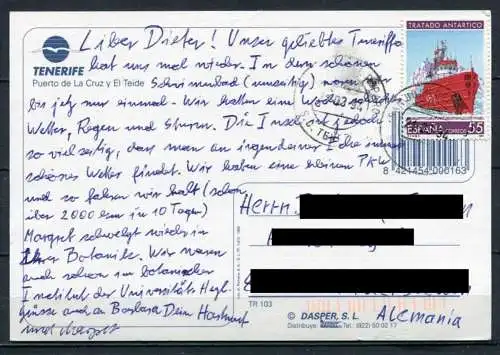 Liber Dieter! Unser geliebtes Teneriffa
hat uns mal wieder. In dem schönen
Schwimmbad (umseitig) waren wir
bis jetzt nur einmal. Wir hatten eine Woche schlechtes
Wetter, Regen und Sturm. Die Insel ist jedoch
so vielseitig, dass man an irgendeiner Ecke immer
schönes Wetter findet. Wir haben einen kleinen PKW
und so fahren wir halt (schon
über 2000 km in 10 Tagen)
Margret schwelgt wieder in
Ihrer Botanik. Wir waren
auch schon im botanischen
Institut der Universität. Herzl.
Grüsse auch an Barbara Dein
und Margret
TENERIFE
Puerto de La Cruz y El Teide
TRATADO ANTARTICO
ESPAÑA CORREOS 55
8 421454 090163
Herrn
Alemania
TR 103
© DASPER, S. L.
Distribuye: Tel. (922) 50 02 17